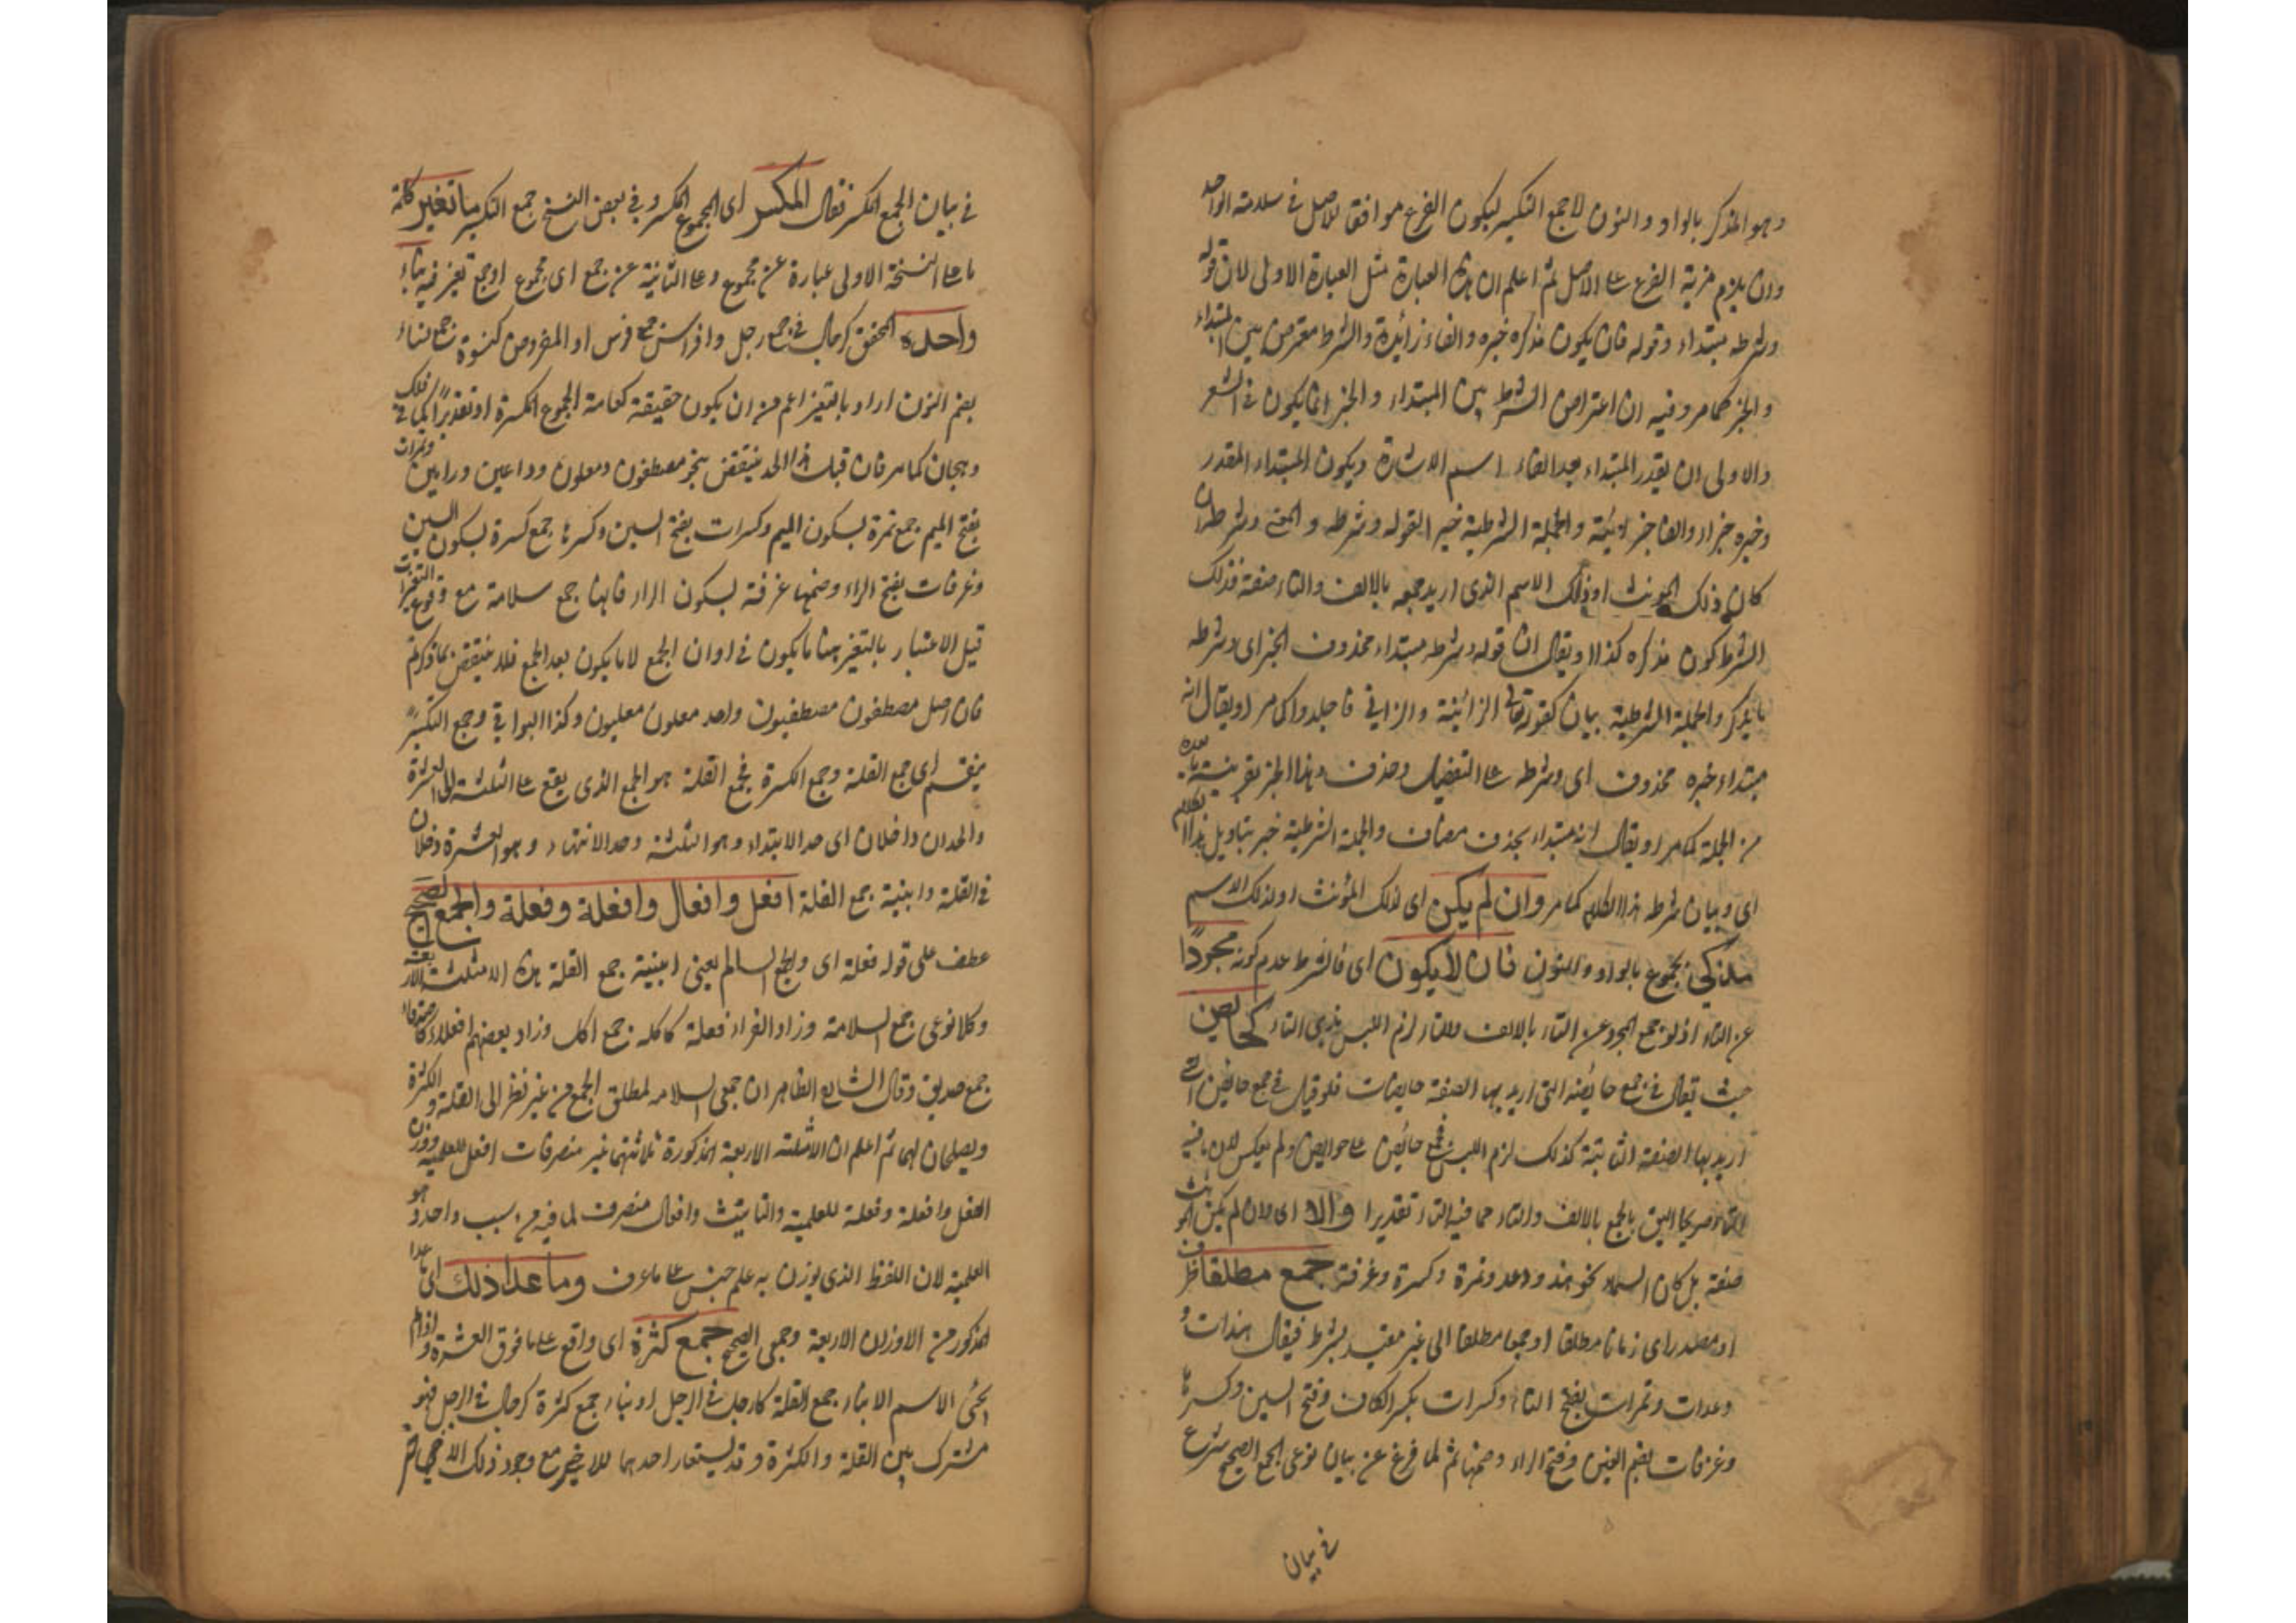 وهو المذكر بالواو والنون لا جمع التكسير ليكون الفرع موافقا للاصل في سلامته الواحد
وان يلزم مزية الفرع على الاصل ثم اعلم ان هذه العبارة مثل العبارة الاولى لان قوله
وشرطه مبتداء وقوله فان يكون مذكره خبره والفاء زائدة والشرط معترض بين المبتداء
والخبر كما مر وفيه ان اعتراض الشرط بين المبتداء والخبر انما يكون في الشعر
والاولى ان يقدر المبتداء بعد الفاء اسم الاشارة ويكون المبتداء المقدر
وخبره جزاء والفاء جزائية والجملة الشرطية خبر القوله وشرطه والمعنى وشرطه ان
كان ذلك المؤنث او ذلك الاسم الذى اريد جمعه بالالف والتاء صفة فذلك
الشرط كون مذكره كذا او يقال ان قوله وشرطه مبتداء محذوف الخبر اى وشرطه
ما يذكر والجملة الشرطية بيان كقوله تعالى الزانية والزاني فاجلدوا كما مر او يقال انه
مبتداء خبره محذوف اى وشرطه على التفصيل وحذف هذا الخبر بقرينة ما بعده
من الجملة كما مر او يقال انه مبتداء بحذف مضاف والجملة الشرطية خبر بتاويل هذا الكلام
اى وبيان شرطه هذا الكلام كما مر وان لم يكن اى لذلك المؤنث او لذلك الاسم
مذكر مجموع بالواو والنون فان لا يكون اى فالشرط عدم كونه مجردا
عن التاء اذ لو جمع المجرد عن التاء بالالف والتاء لزم اللبس بذى التاء كحائض
حيث يقال في جمع حائضة التى اريد بها الصفة حايضات فلو قيل في جمع حايض التى
اريد بها الصفة الثابتة كذلك لزم اللبس فجمع حائض على حوايض ولم يعكس لان ما فيه
التاء صريحا اليق بالجمع بالالف والتاء مما فيه التاء تقديرا والا اى وان لم يكن المؤنث
صفة بل كان اسما نحو هند ودعد وتمرة وكسرة وغرفة جمع مطلقا ظرف
او مصدر اى زمانا مطلقا او جمعا مطلقا الى غير مقيد بشرط فيقال هندات و
دعدات وتمرات بفتح التاء وكسرات بكسر الكاف وفتح السين وكسرها
وغرفات بضم الغين وفتح الراء وضمها ثم لما فرغ عن بيان نوعى الجمع الصحيح شرع
في بيان
في بيان الجمع المكسر فقال المكسر اى المجموع المكسر وفي بعض النسخ جمع التكسير ما تغير كلمة
ما على النسخة الاولى عبارة عن مجموع وعلى الثانية عن جمع اى مجموع او جمع تغير فيه بناء
واحده المحقق كرجال في جمع رجل وافراس جمع فرس او المفروض كنسوة جمع نساء
بضم النون اراد بالتغير اعم من ان يكون حقيقة كعامة الجموع المكسرة او تقديرا كما في فلك
وهجان كما مر فان قيل هذا الحد ينتقض بنحو مصطفون ومعلون وداعين ورامين وتمرات
بفتح الميم جمع تمرة بسكون الميم وكسرات بفتح السين وكسرها جمع كسرة بسكون السين
وغرفات بفتح الراء وضمها غرفة بسكون الراء فانها جمع سلامة مع وقوع التغيرات
قيل الاعتبار بالتغير هنا ما يكون في اوان الجمع لا ما يكون بعد الجمع فلا ينتقض بما ذكرتم
فان اصل مصطفون مصطفيون واحد معلون معليون وكذا البواقي وجمع التكسير
ينقسم اى جمع القلة وجمع الكسرة فجمع القلة هو الجمع الذى يقع على الثلثة الى العشرة
والحدان داخلان اى حد الابتداء وهو الثلثة وحد الانتهاء وهو العشرة دخلان
في القلة وابنية جمع القلة افعل وافعال وافعلة وفعلة والجمع الصحيح
عطف على قوله فعلة اى والجمع السالم يعنى ابنية جمع القلة هذه الامثلة الاربعة
وكلا نوعى جمع السلامة وزاد الفراء فعلة كاكلة جمع اكل وزاد بعضهم افعلاء كاصدقاء
جمع صديق وقال الشارح الظاهر ان جمعى السلامة لمطلق الجمع من غير نظر الى القلة والكثرة
ويصلحان لهما ثم اعلم ان الامثلة الاربعة المذكورة ثلاثتها غير منصرفات افعل للعلمية ووزن
الفعل وافعلة وفعلة للعلمية والتانيث وافعال منصرف لما فيه من سبب واحد وهو
العلمية لان اللفظ الذى يوزن به علم جنس على ما عرف وما عدا ذلك اى ما عدا
المذكور من الاوزان الاربعة وجمعى الصحيح جمع كثرة اى واقع على ما فوق العشرة واذا لم
يجئ الاسم الا بناء جمع القلة كارجل في الرجل او بناء جمع كثرة كرجال في الرجل فهو
مشترك بين القلة والكثرة وقد يستعار احدهما للاخر مع وجود ذلك الاخر